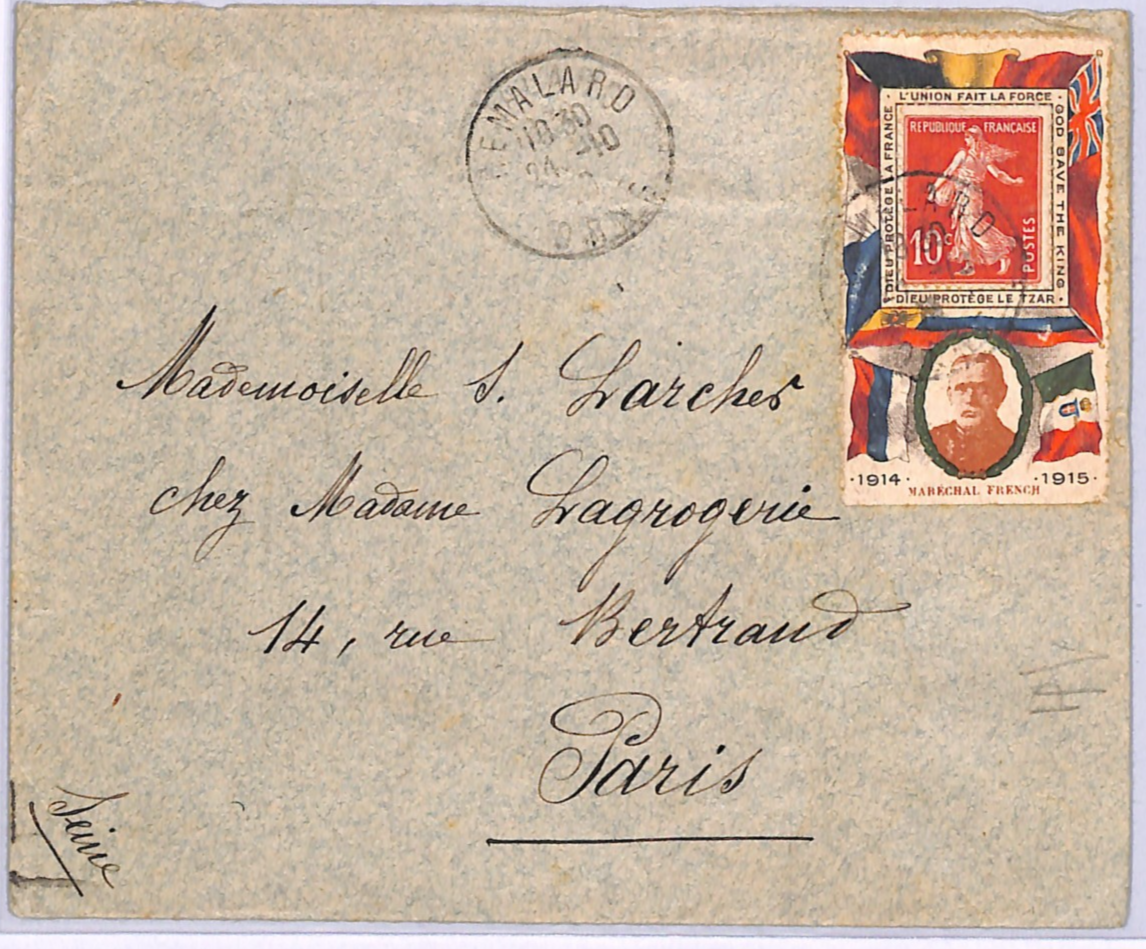 REMALARD
ORNE
L'UNION FAIT LA FORCE
DIEU PROTÈGE LA FRANCE
GOD SAVE THE KING
REPUBLIQUE FRANÇAISE
10c
POSTES
DIEU PROTÈGE LE TZAR
MALARD
·1914· ·1915·
MARÉCHAL FRENCH
Mademoiselle S. Larcher
chez Madame Lagrogerie
14, rue Bertrand
Paris
Seine